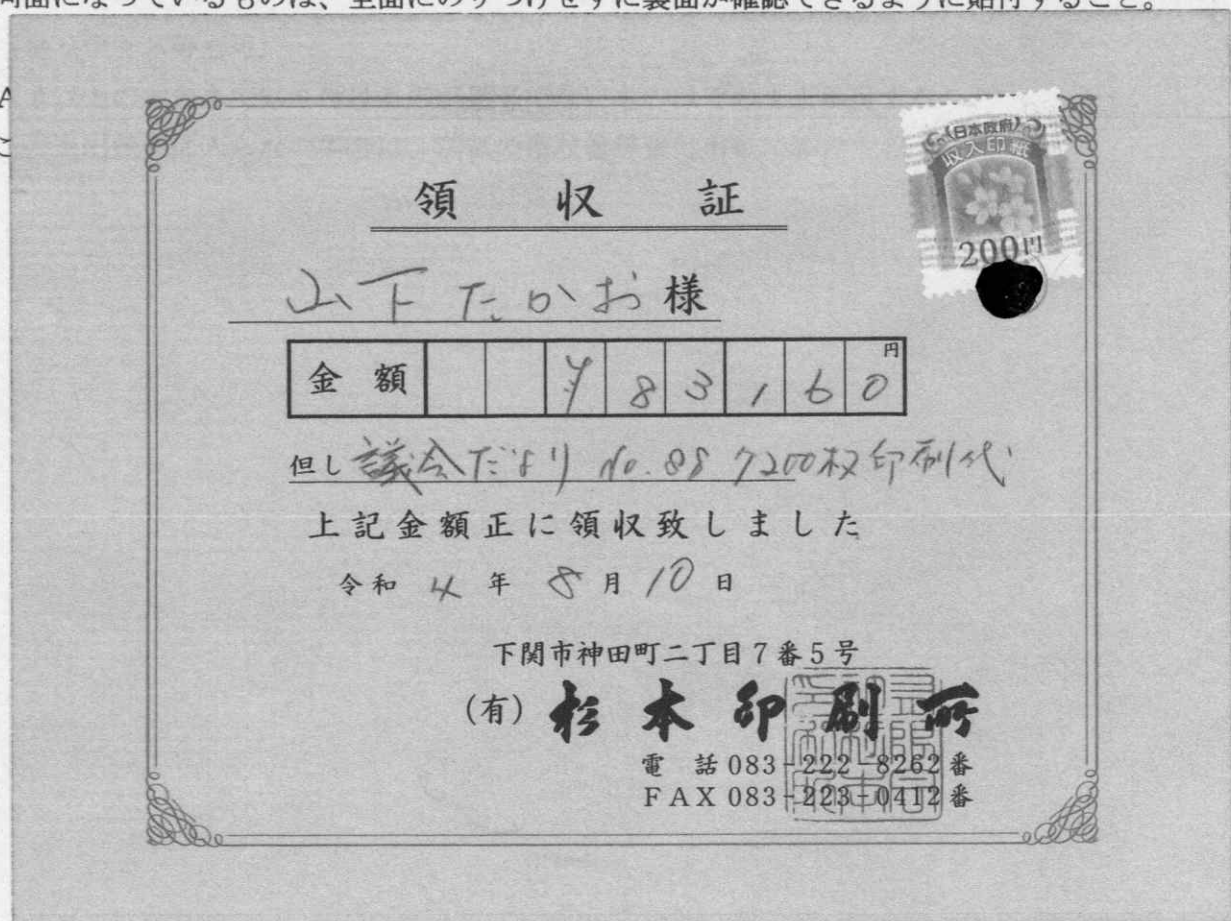 両面になっているものは、全面にのりづけせずに裏面が確認できるように貼付すること。
日本政府
収入印紙
200円
領収証
山下たかお様
金額 ¥83160円
但し 議会だより No.88 7200枚印刷代
上記金額正に領収致しました
令和4年8月10日
下関市神田町二丁目7番5号
(有)杉本印刷所
電話083-222-8262番
FAX083-223-0412番